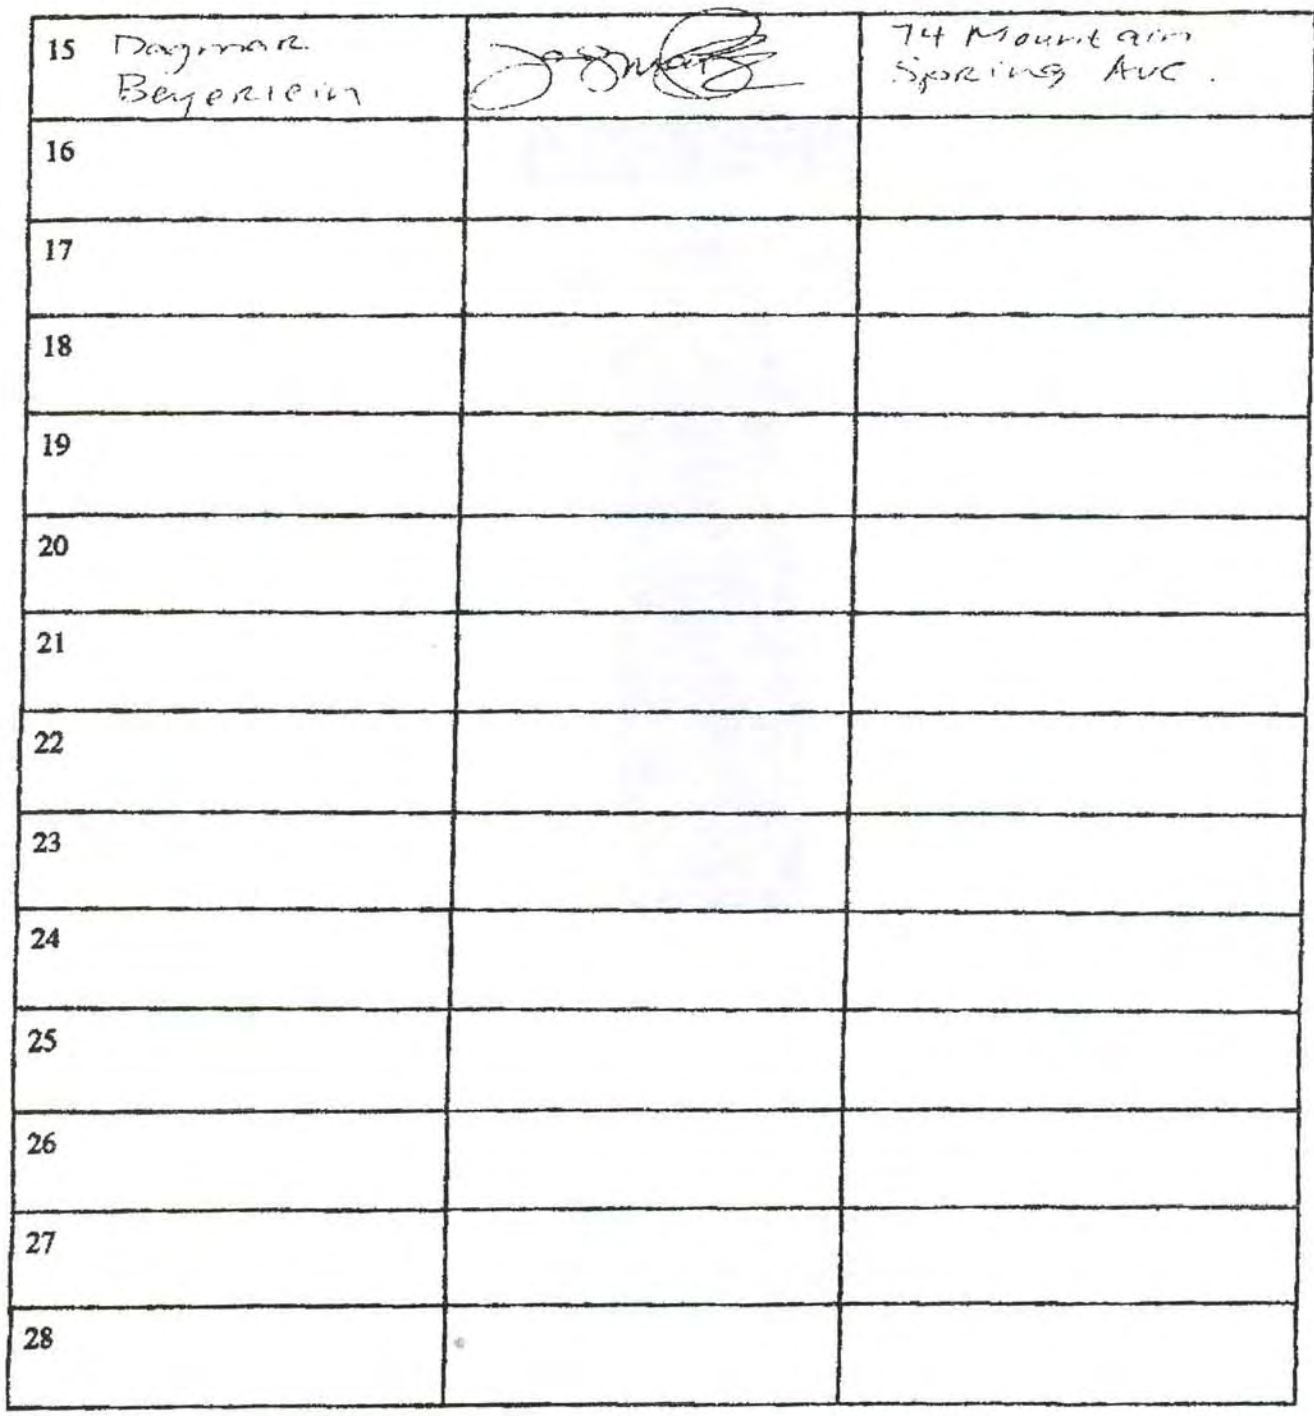 15 Dagmar
Beyerlein
74 Mountain
Spring Ave.
16
17
18
19
20
21
22
23
24
25
26
27
28